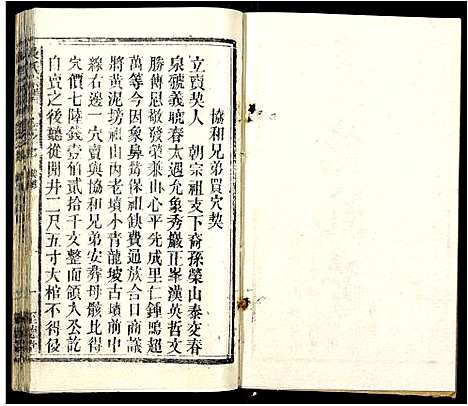 協和兄弟買穴契
立賣契人 朝宗祖支下裔孫榮山泰交春
泉號義琥春太遇允象秀巖正峯漢英哲文
勝傳恩敬發榮東山心平先成里仁鍾鳴超
萬等今因象鼻嘴保祖缺費過放合日商議
將黃泥塝祖山內老墳小青龍坡古墳前中
線右邊一穴賣與協和兄弟安葬母骸比得
穴價七陸錢壹伯貳拾千文整面領入丞乾
自賣之後聽從開井二尺五寸大棺不得侵